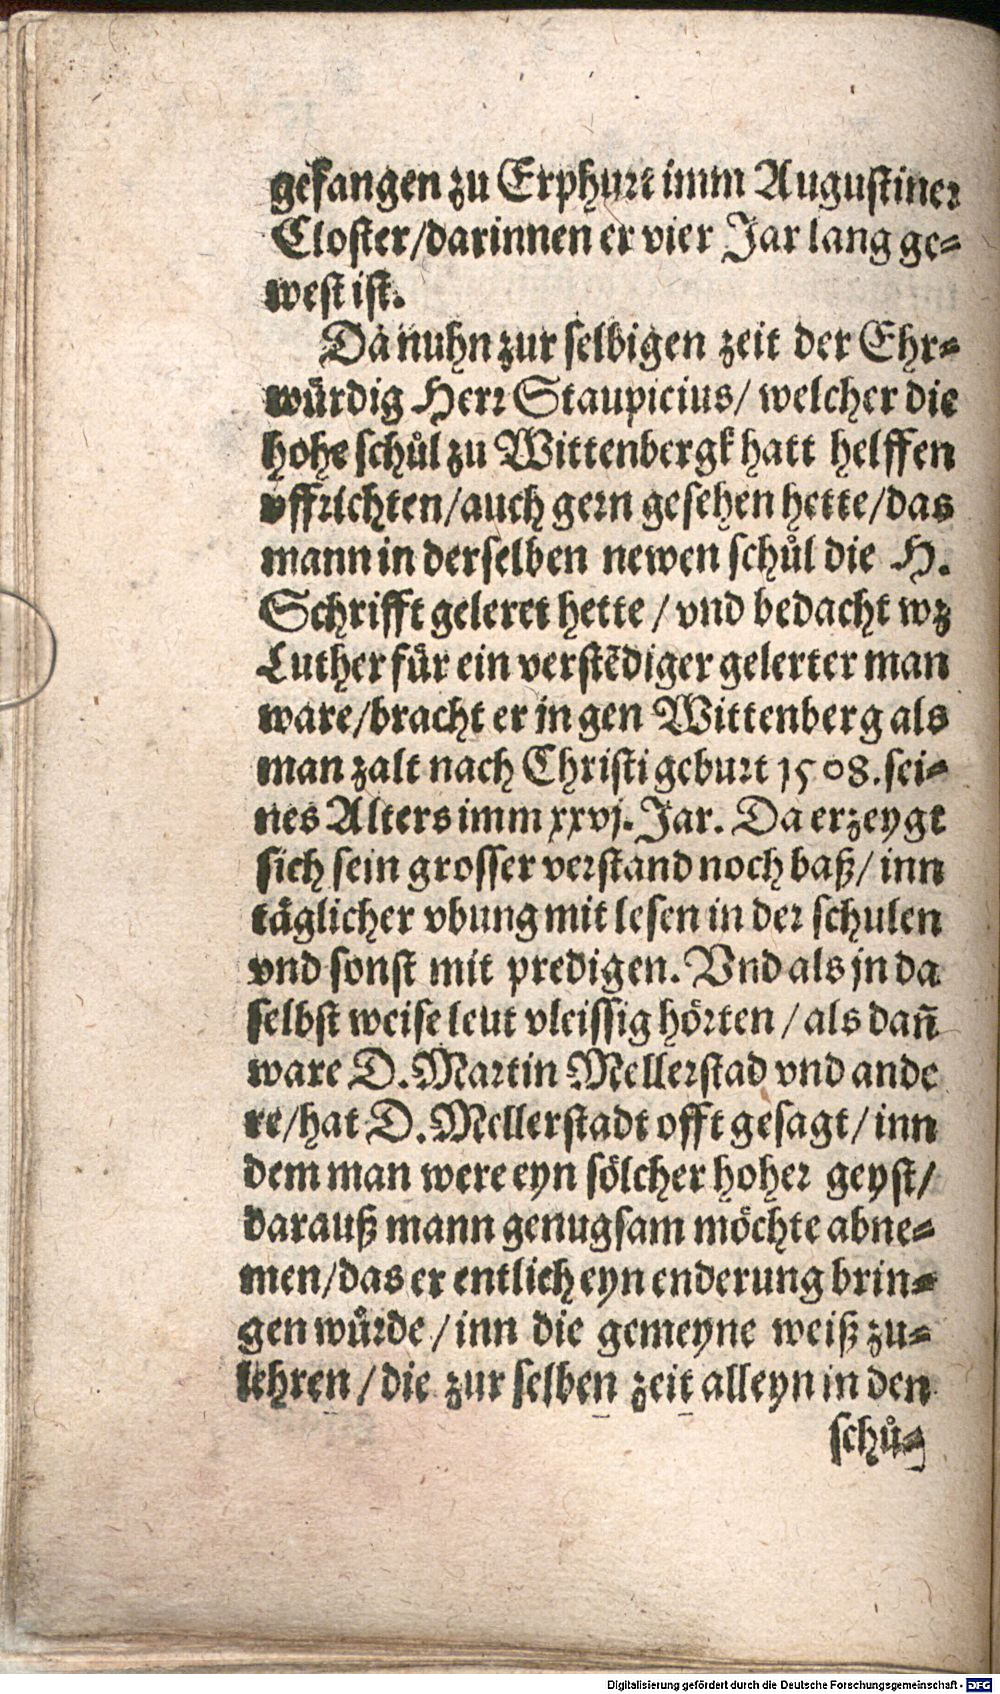 gefangen zu Erphurt imm Augustiner
Closter/darinnen er vier Jar lang ge⸗
west ist.
Da nuhn zur selbigen zeit der Ehr⸗
würdig Herr Staupicius/ welcher die
hohe schůl zu Wittenbergk hatt helffen
vffrichten/auch gern gesehen hette/das
mann in derselben newen schůl die H.
Schrifft geleret hette / vnd bedacht wz
Luther für ein verstēdiger gelerter man
ware/bracht er jn gen Wittenberg als
man zalt nach Christi geburt 1508.sei⸗
nes Alters imm xxvj. Jar. Da erzeygt
sich sein grosser verstand noch baß/ inn
täglicher vbung mit lesen in der schulen
vnd sonst mit predigen. Vnd als jn da
selbst weise leut vleissig hörten / als dañ
ware D. Martin Mellerstad vnd ande
re/hat D. Mellerstadt offt gesagt/ inn
dem man were eyn sölcher hoher geyst/
darauß mann genugsam möchte abne⸗
men/das er entlich eyn enderung brin⸗
gen wůrde / inn die gemeyne weiß zu⸗
lehren / die zur selben zeit alleyn in den
schů⸗
Digitalisierung gefördert durch die Deutsche Forschungsgemeinschaft - DFG